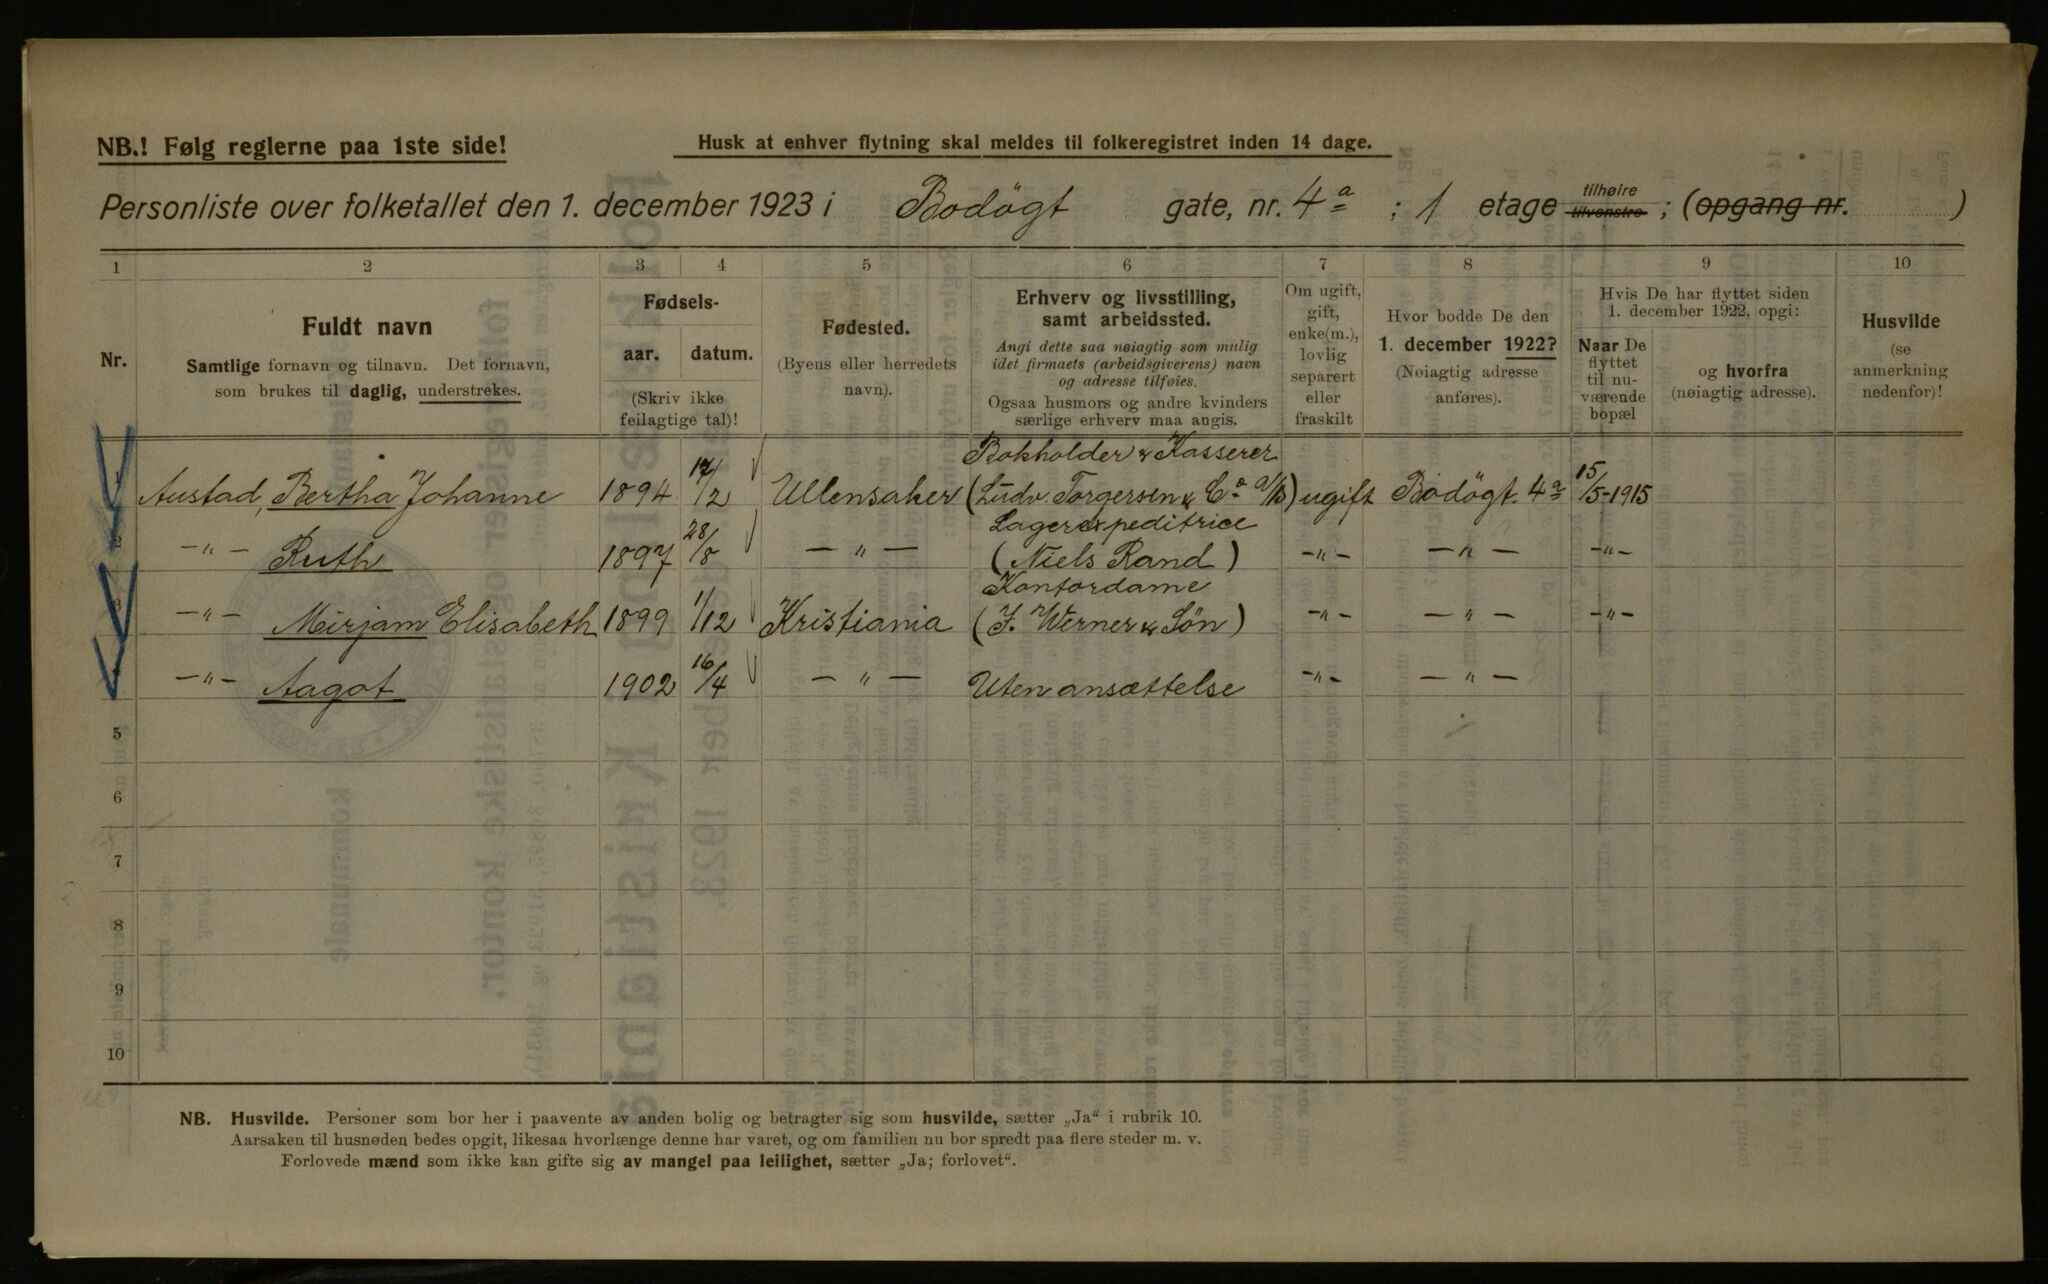 NB.! Følg reglerne paa 1ste side!
Husk at enhver flytning skal meldes til folkeregistret inden 14 dage.
Personliste over folketallet den 1. december 1923 i Bodøgt gate, nr. 4a ; 1 etage tilhøire tilvenstre ; (opgang nr. )
1 2 3 4 5 6 7 8 9 10
Nr.
Fuldt navn
Samtlige fornavn og tilnavn. Det fornavn,
som brukes til daglig, understrekes.
Fødsels-
aar. datum.
(Skriv ikke
feilagtige tal)!
Fødested.
(Byens eller herredets
navn).
Erhverv og livsstilling,
samt arbeidssted.
Angi dette saa nøiagtig som mulig
idet firmaets (arbeidsgiverens) navn
og adresse tilføies.
Ogsaa husmors og andre kvinders
særlige erhverv maa angis.
Om ugift,
gift,
enke(m.),
lovlig
separert
eller
fraskilt
Hvor bodde De den
1. december 1922?
(Nøiagtig adresse
anføres).
Hvis De har flyttet siden
1. december 1922, opgi:
Naar De
flyttet
til nu-
værende
bopæl
og hvorfra
(nøiagtig adresse).
Husvilde
(se
anmerkning
nedenfor)!
Bokholder & Kasserer
1 Austad, Bertha Johanne 1894 17/2 Ullensaker (Ludv. Torgersen & Co A/S) ugift Bodøgt. 4a 15/5-1915
Lagerexpeditrice
2 —„— Ruth 1897 28/8 —„— (Niels Rand) —„— —„— —„—
Kontordame
3 —„— Mirjam Elisabeth 1899 1/12 Kristiania (J. Werner & Søn) —„— —„— —„—
4 —„— Aagot 1902 16/4 —„— Uten ansættelse —„— —„—
5
6
7
8
9
10
NB. Husvilde. Personer som bor her i paavente av anden bolig og betragter sig som husvilde, sætter „Ja“ i rubrik 10.
Aarsaken til husnøden bedes opgit, likesaa hvorlænge denne har varet, og om familien nu bor spredt paa flere steder m. v.
Forlovede mænd som ikke kan gifte sig av mangel paa leilighet, sætter „Ja; forlovet“.